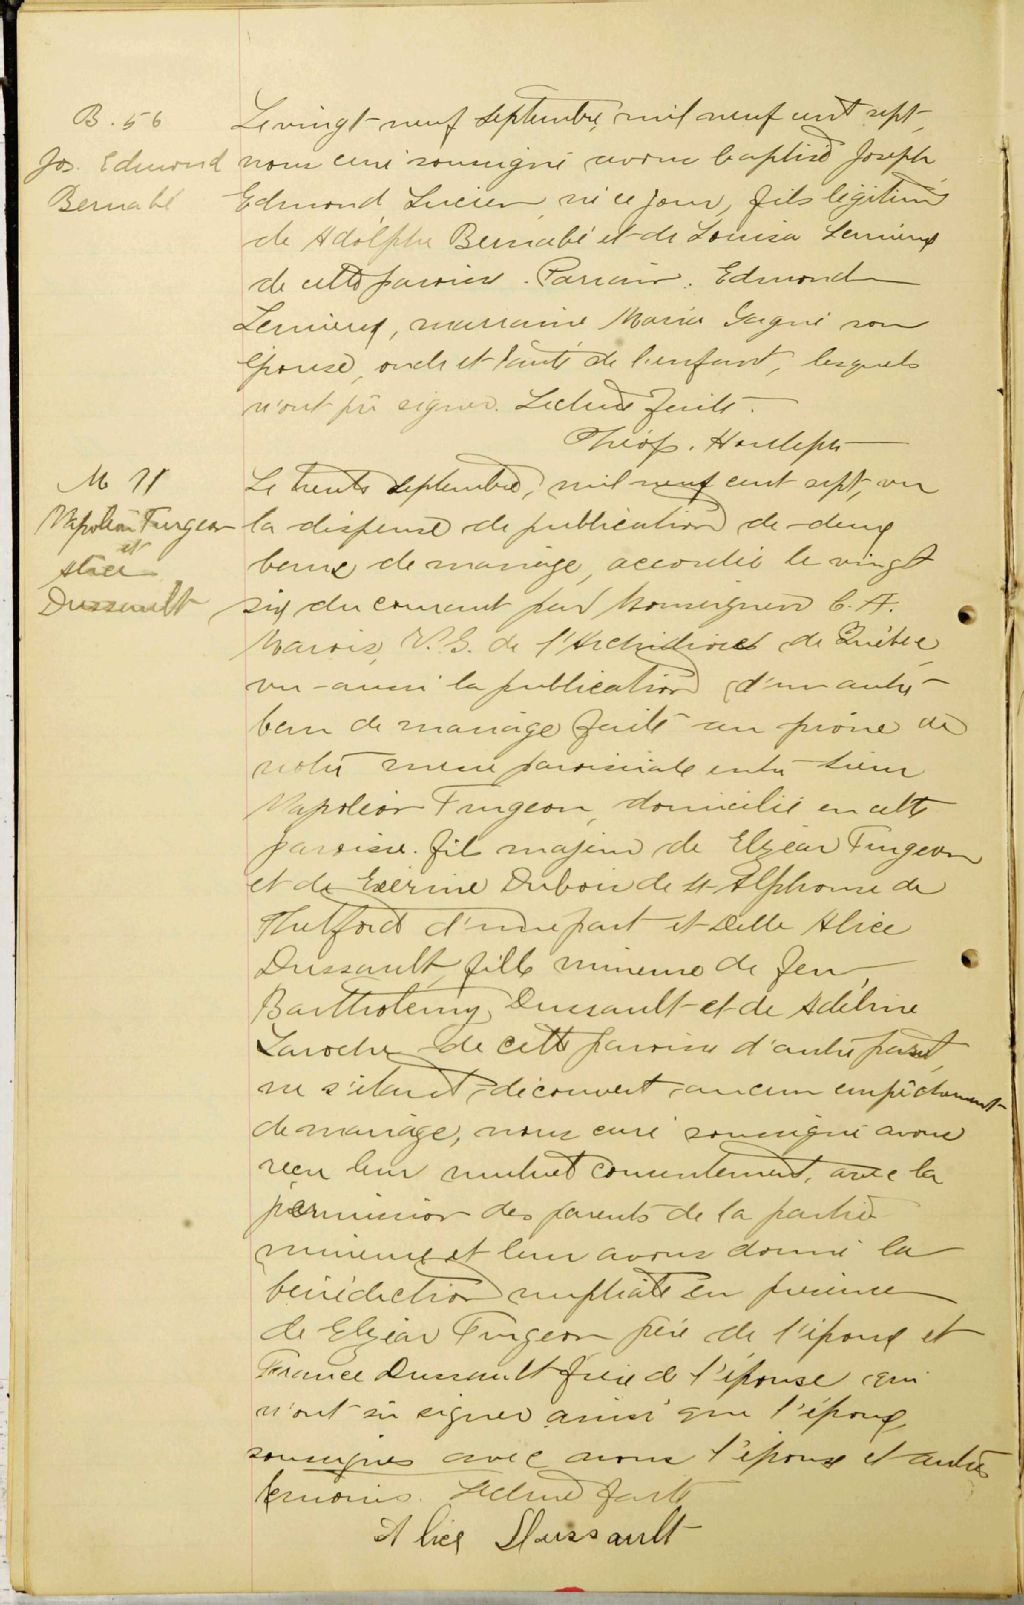 B. 56
Jos. Edmond
Bernabé
Le vingt-neuf septembre, mil neuf cent sept,
nous curé soussigné avons baptisé Joseph
Edmond Lucien, né ce jour, fils légitime
de Adolphe Bernabé et de Louisa Lemieux
de cette paroisse. Parrain. Edmond
Lemieux, marraine Maria Gagné son
épouse, oncle et tante de l'enfant, lesquels
n'ont pu signer. Lecture faite.
Théop. Houle ptre
M 11
Napoléon Turgeon
et
Alice
Dussault
Le trente septembre, mil neuf cent sept, vu
la dispense de publication de deux
bans de mariage, accordée le vingt
six du courant par Monseigneur C. A.
Marois, V.G. de l'Archidiocèse de Québec,
vu aussi la publication d'un autre
ban de mariage faite au prône de
notre messe paroissiale entre sieur
Napoléon Turgeon, domicilié en cette
paroisse. fils majeur de Elzéar Turgeon
et de Exérine Dubois de St-Alphonse de
Thetford d'une part et Delle Alice
Dussault fille mineure de feu
Barthélemy Dussault et de Adéline
Laroche de cette paroisse d'autre part,
ne s'étant découvert aucun empêchement
de mariage, nous curé soussigné avons
reçu leur mutuel consentement, avec la
permission des parents de la partie
mineure et leur avons donné la
bénédiction nuptiale en présence
de Elzéar Turgeon père de l'époux et
France Dussault frère de l'épouse qui
n'ont su signer ainsi que l'époux,
soussignés avec nous l'épouse et autres
témoins. Lecture faite
Alice Dussault